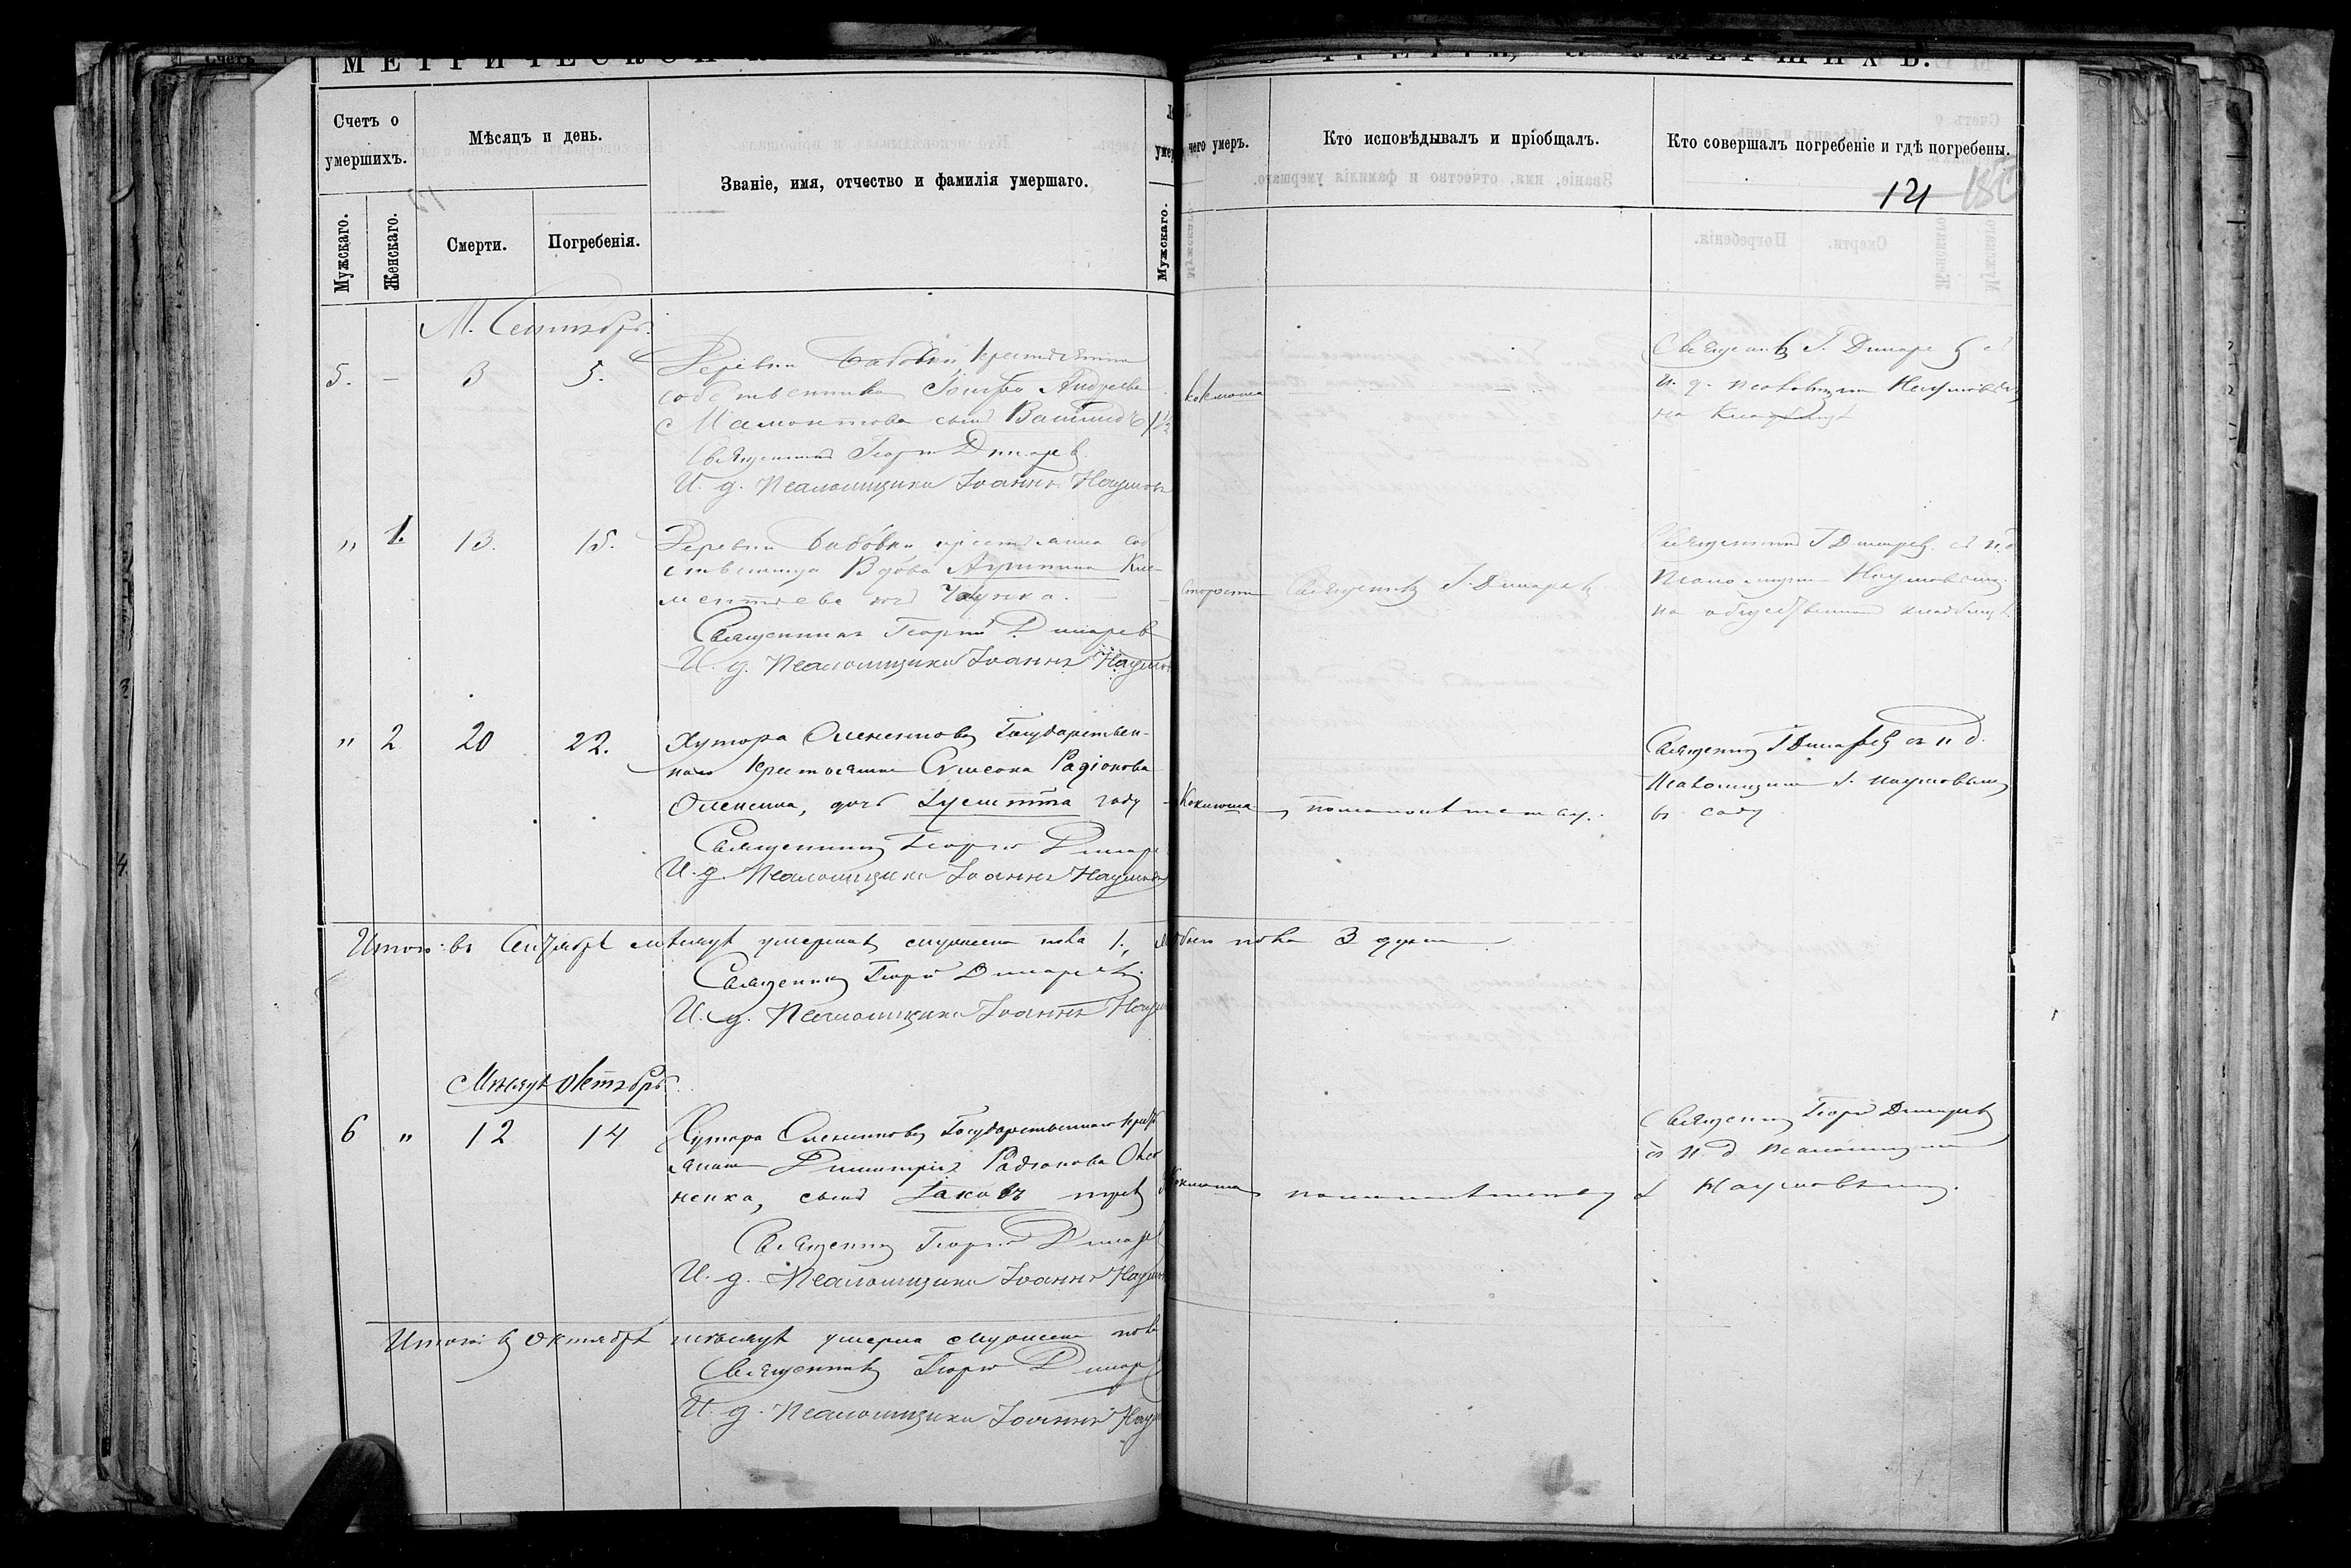 Счетъ о умершихъ.
Мужскаго.
Женскаго.
Мѣсяцъ и день.
Смерти.
Погребенія.
Званіе, имя, отчество и фамилія умершаго.
Мужскаго.
чего умеръ.
Кто исповѣдывалъ и пріобщалъ.
Кто совершалъ погребеніе и гдѣ погребены.
121
М. Сентябрь.
5. - 3 5.
Деревни Бабовки, крестьянина
собственника Іосифа Андреева
Мамонтова сынъ
Священникъ Георгій Димарев
И. д. Псаломщика Іоаннъ Наумовъ
коклюша
Священникъ Г. Димарев съ
и. д. псаломщик Наумовымъ
на кладбищѣ
" 1. 13. 15.
Деревни Бабовки крестьянка соб
ственница Вдова Агрипина Кли-
ментьева
Священникъ Георгій Димарев
И. д. Псаломщика Іоаннъ Наумов
старости
Священникъ Г. Димарев
Священникъ Г Димарев съ и. д
Псаломщик Наумовымъ
на общественномъ кладбищѣ
" 2 20 22.
Хутора Государствен-
наго крестьянина Сѵмеона Радіонова
дочь году
Священникъ Георгій Димарев
И. д. Псаломщика Іоаннъ Наумовъ
Коклюша
по малолѣтству.
Священникъ Г Димарев съ и д.
Псаломщик І. Наумовымъ
въ саду
Итого: въ Сентябрѣ мѣсяцѣ умершихъ мужеска пола 1, обоего пола 3 души
Священникъ Георгій Димарев.
И. д. Псаломщика Іоаннъ Наум
Мѣсяцъ Октябрь
6 " 12 14
Хутора Государственнаго крест
янина Димитрія Радіонова
ненка, сынъ Іаковъ трех
Священникъ Георгій Димарев
И. д. Псаломщика Іоаннъ Наумов
Коклюша
по малолѣтству
Священникъ Георгій Димарев
съ и д псаломщик
Наумовымъ.
Итого: въ Октябрѣ мѣсяцѣ умерла мужеска пола
Священникъ Георгій Димарев
И. д. Псаломщика Іоаннъ Наум